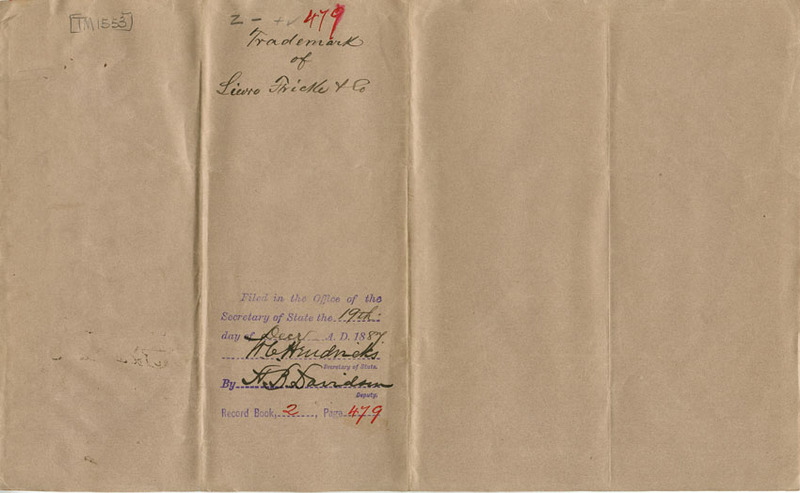 [TM1553]
2 - 479
Trademark
of
Siewo Fricke & Co
Filed in the Office of the
Secretary of State the 19th
day of Decr A. D. 1887
W. C. Hendricks
Secretary of State.
By H. B. Davidson
Deputy.
Record Book, 2, Page 479